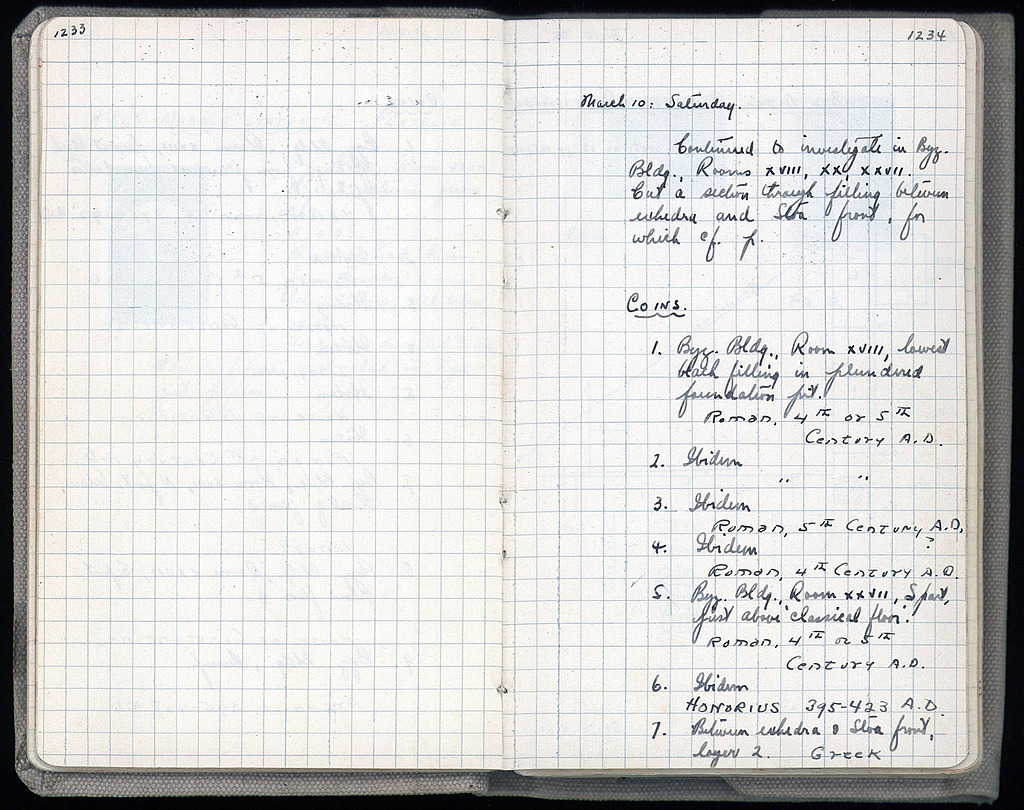 1233
1234
March 10: Saturday.
Continued to investigate in Byz.
Bldg., Rooms XVIII, XX, XXVII.
Cut a section through filling between
exhedra and Stoa front, for
which cf. p.
COINS.
1. Byz. Bldg., Room XVIII, lowest
black filling in plundered
foundation pit.
Roman, 4TH or 5TH
Century A.D.
2. Ibidem
" "
3. Ibidem
Roman, 5TH Century A.D.
?
4. Ibidem
Roman, 4TH Century A.D.
5. Byz. Bldg., Room XXVII, S part,
just above 'classical floor'.
Roman, 4TH or 5TH
Century A.D.
6. Ibidem
HONORIUS 395-423 A.D.
7. Between exhedra & Stoa front,
layer 2. Greek